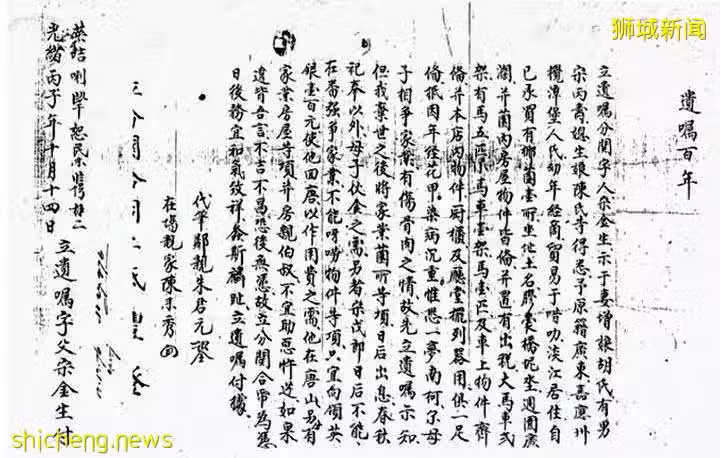 狮城新闻
遺嘱百年
立遺嘱分関字人宗金生示于妻增娘胡氏有男
丙青媳生娘陳氏等得悉予原籍廣東嘉應州
潭堡人氏幼年經商貿易于叻淡江居住自
已承買有椰園壹所坐址土名膠橋坐週圍廣
濶并園內房屋物件皆俻并置有出税大馬車弍
架有馬五匹吊馬車壹架馬壹匹及車上物件齊
俻并本店内物件厨櫃及廳堂擺列器用俱一足
俻祇因年經花甲染病沉重惟恐一夢南柯尔母
子相爭家業有傷骨肉之情故先立遺嘱示知
但我棄世之後將家業園所等項日后出息春秋
祀奉以外母子伙食之需另者茂郎日后不能
在番强爭家業不能物件等項只宜向領英
銀壹百元使他回唐以作用費之需他在唐山另有
家業房屋等項并房親伯叔不宜助惡忤逆如果
違皆吾言不吉不昌恐後無憑故立分関合同為憑
日後務宜和氣致祥螽斯麟趾立遺嘱付據
代筆親朱君元
在塲親家陳秀
光緒丙子年十月十四日 立遺嘱字父宗金生付
shicheng.news